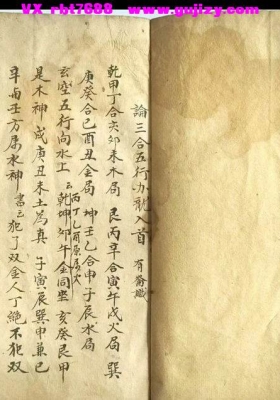 VX rbt7688 www.gujizy.com
論三合五行龍入首 有
乾甲丁合亥卯未木局 艮丙辛合寅午戌火局 巽
庚癸合巳酉丑金局 坤壬乙合申子辰水局
玄空五行向水上 云 丙丁乙酉原属火 乾坤卯午金同坐 亥癸艮甲
是木神 戌庚丑未土為真 子寅辰巽申兼巳
辛酉壬方属水神 書云犯了双金人丁絶不犯双